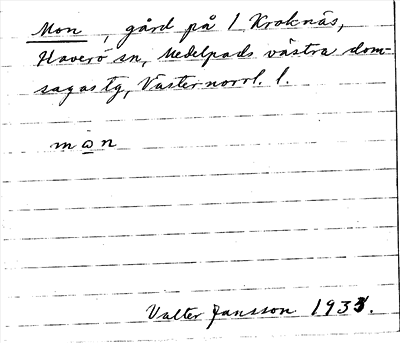 Mon, gård på 1 Kroknäs,
Haverö sn, Medelpads västra dom-
sagas tg, Västernorrl. l.
man
Valter Jansson 1933.